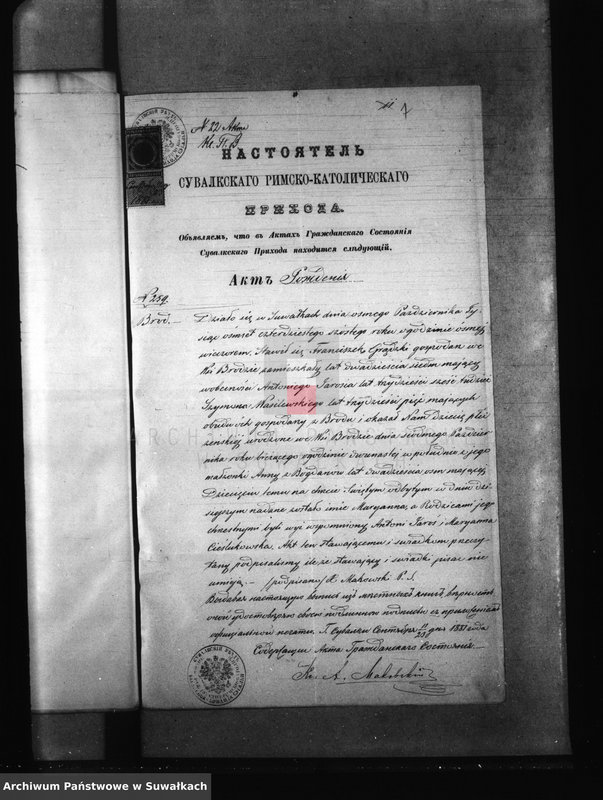 № 22 Akta
НАСТОЯТЕЛЬ
СУВАЛКСКАГО РИМСКО-КАТОЛИЧЕСКАГО
ПРИХОДА.
Объявляемъ, что въ Актахъ Гражданскаго Состоянія
Сувалкскаго Прихода находится слѣдующій.
Актъ Рожденія
№ 259.
Bród. Działo się w Suwałkach dnia ósmego Października Ty-
siąc ośmset czterdziestego szóstego roku o godzinie ósmej
wieczorem. Stawił się Franciszek Grądzki gospodarz we
Wsi Brodzie zamieszkały lat dwadzieścia siedm mający
w obecności Antoniego Jarosia lat trzydzieści sześć tudzież
Szymona Wasilewskiego lat trzydzieści pięć mających
obudwóch gospodarzy z Brodu i okazał Nam dziecię płci
żeńskiej urodzone we Wsi Brodzie dnia siódmego Paździer-
nika roku bieżącego o godzinie dwunastej w południe z jego
małżonki Anny z Bogdanów lat dwadzieścia ośm mającej.
Dziecięciu temu na chrzcie Świętym odbytym w dniu dzi-
siejszym nadane zostało imie Maryanna, a Rodzicami jego
chrzestnymi byli wyż wspomniony Antoni Jaroś i Maryanna
Cieślukowska. Akt ten stawającemu i świadkom przeczy-
tany podpisaliśmy ile że stawający i świadki pisać nie
umieją. — /podpisano/ X Makowski
настоящую выпись изъ метрической книги вѣрность
оной удостовѣряю своею подписью съ приложеніемъ
печати. Г. Сувалки Сентября дня 1881 года
Содержащій Акта Гражданскаго Состоянія
Кс. А. Маковскій
Archiwum Państwowe w Suwałkach